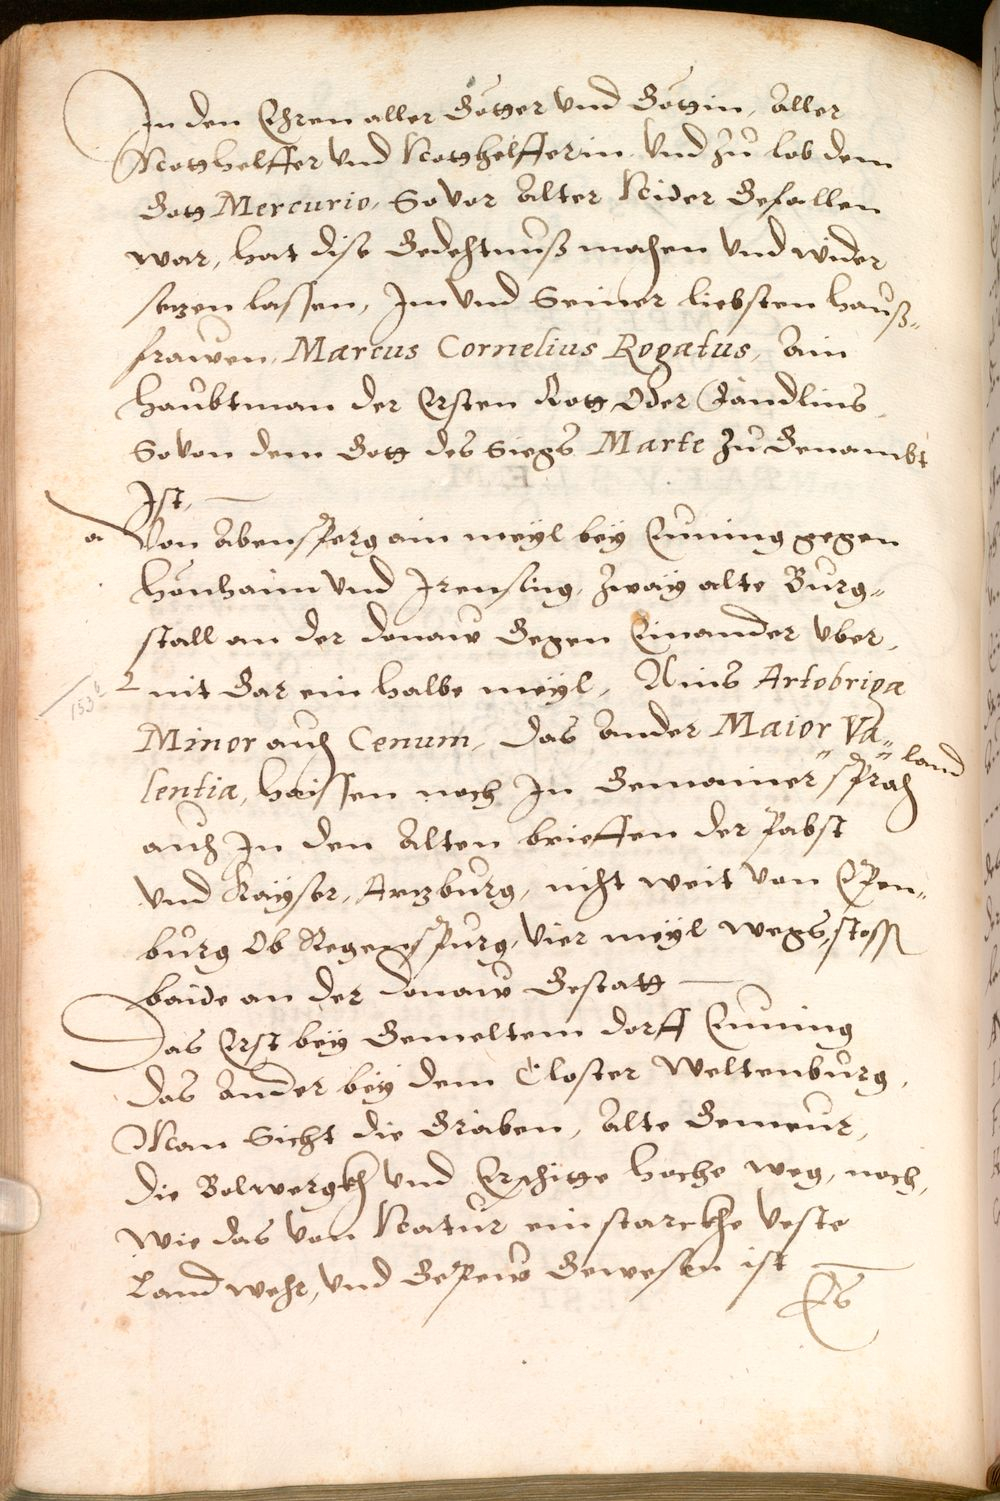 In den Ehren aller Götter Vnd Göttin, Aller
Notthelffer Vnd Notthelfferin Vnd zu lob dem
Gott Mercurio, So vor Alter Nider Gefallen
war, hat dise Gedechtnuß machen Vnd wider
setzen lassen, Im Vnd Seiner liebsten hauß„
frawen, Marcus Cornelius Rogatus, Ain
haubtman der Ersten Rott Oder Fändlins
So von dem Gott des Siegs Marte zu Genambt
Ist,
a Von Abensperg ain meyl bey Eining gegen
hönhaim Vnd Irensing, zway alte Burg„
stall an der donaw Gegen Einander vber,
nit Gar ein halbe meyl, Ains Artobriga
153b
Minor auch Cenum, das Ander Maior Va„
lentia, haissen noch In Gemainer " sprach " land
auch In den Alten brieffen der Pabst
Vnd Kayser, Artzburg, nicht weit von Epen„
burg Ob Regenspurg, Vier meyl wegs, stossen
baide an der donaw Gestatt
Das Erst bey Gemeltem dorff Eining
das Ander bey dem Closter Weltenburg,
Man Sicht die Gräben, Alte Gemeur,
die Bolwergkh Vnd hoche weg, noch,
wie das von Natur ein starckhe Veste
Landwehr, Vnd Gepew Gewesen ist
Es